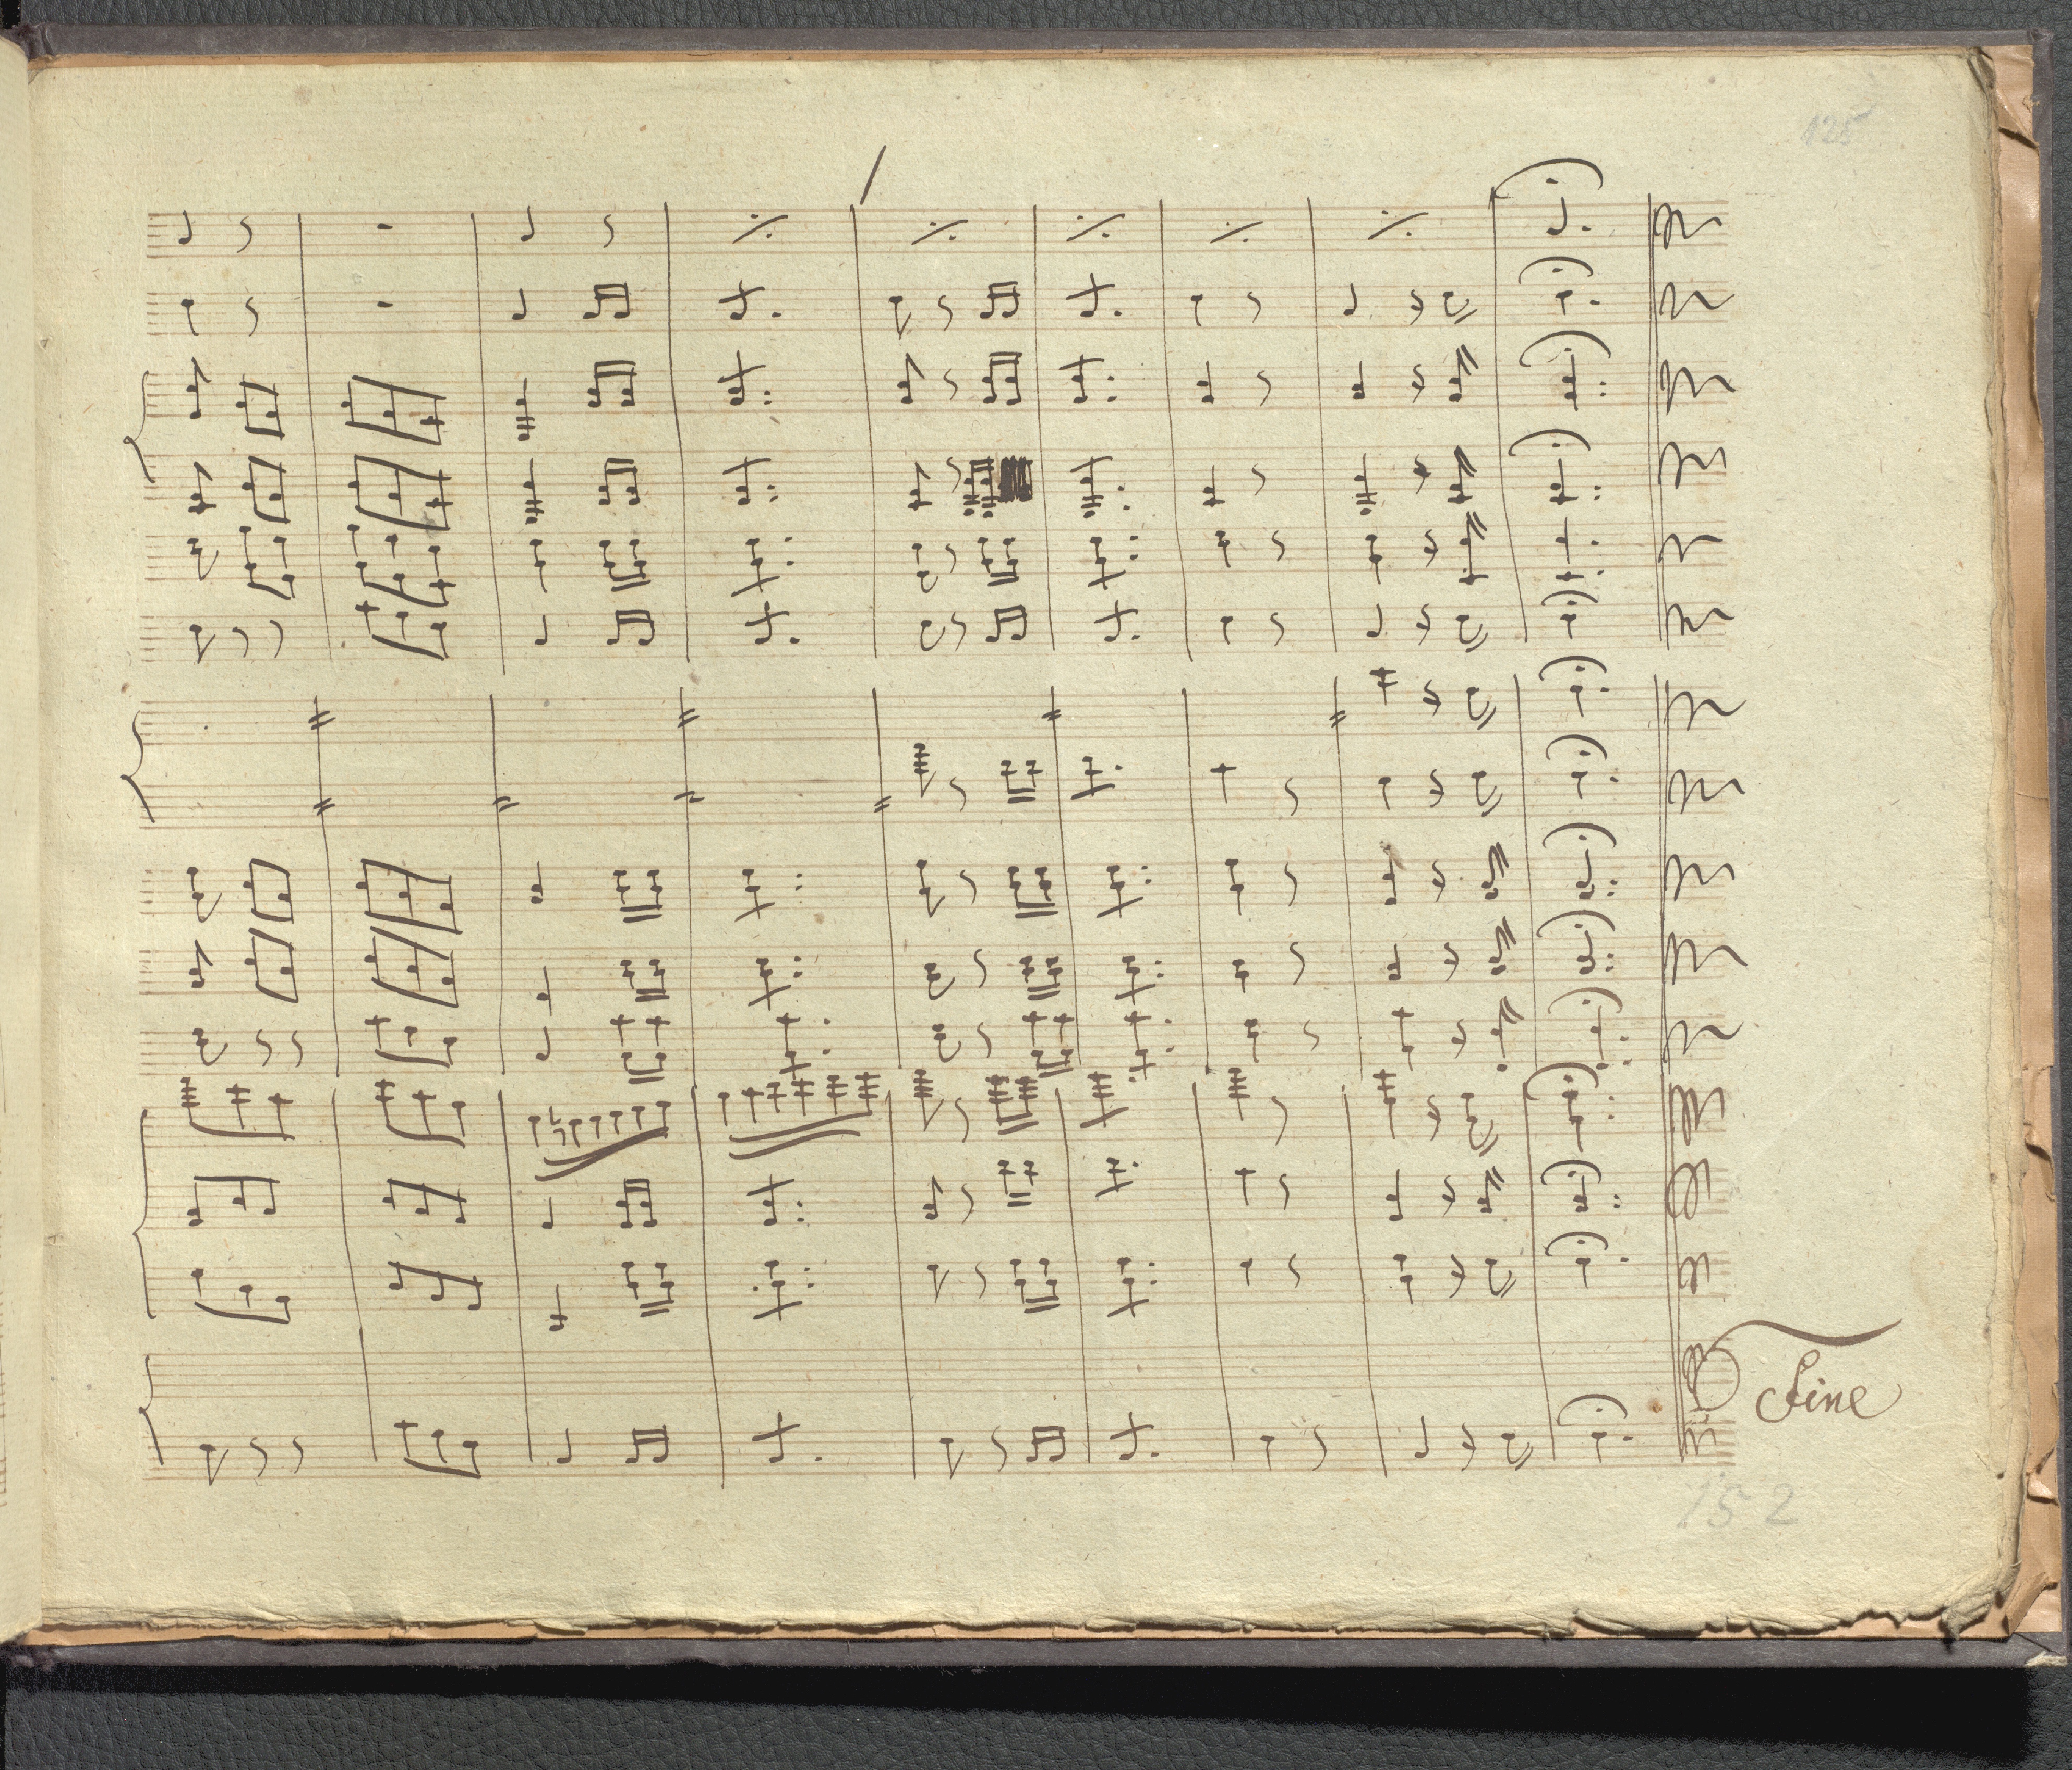 125
Fine
152